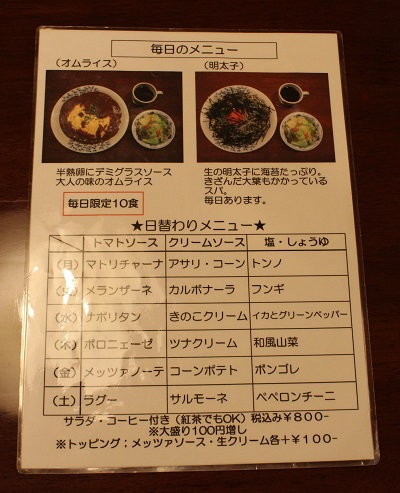 毎日のメニュー
(オムライス) (明太子)
半熟卵にデミグラスソース
大人の味のオムライス
毎日限定10食
生の明太子に海苔たっぷり。
きざんだ大葉もかかっている
スパ。
毎日あります。
★日替わりメニュー★
トマトソース クリームソース 塩・しょうゆ
(月) マトリチャーナ アサリ・コーン トンノ
(火) メランザーネ カルボナーラ フンギ
(水) ナポリタン きのこクリーム イカとグリーンペッパー
(木) ボロニェーゼ ツナクリーム 和風山菜
(金) メッツァノーテ コーンポテト ボンゴレ
(土) ラグー サルモーネ ペペロンチーニ
サラダ・コーヒー付き(紅茶でもOK)税込み¥800-
※大盛り100円増し
※トッピング;メッツァソース・生クリーム各+¥100-